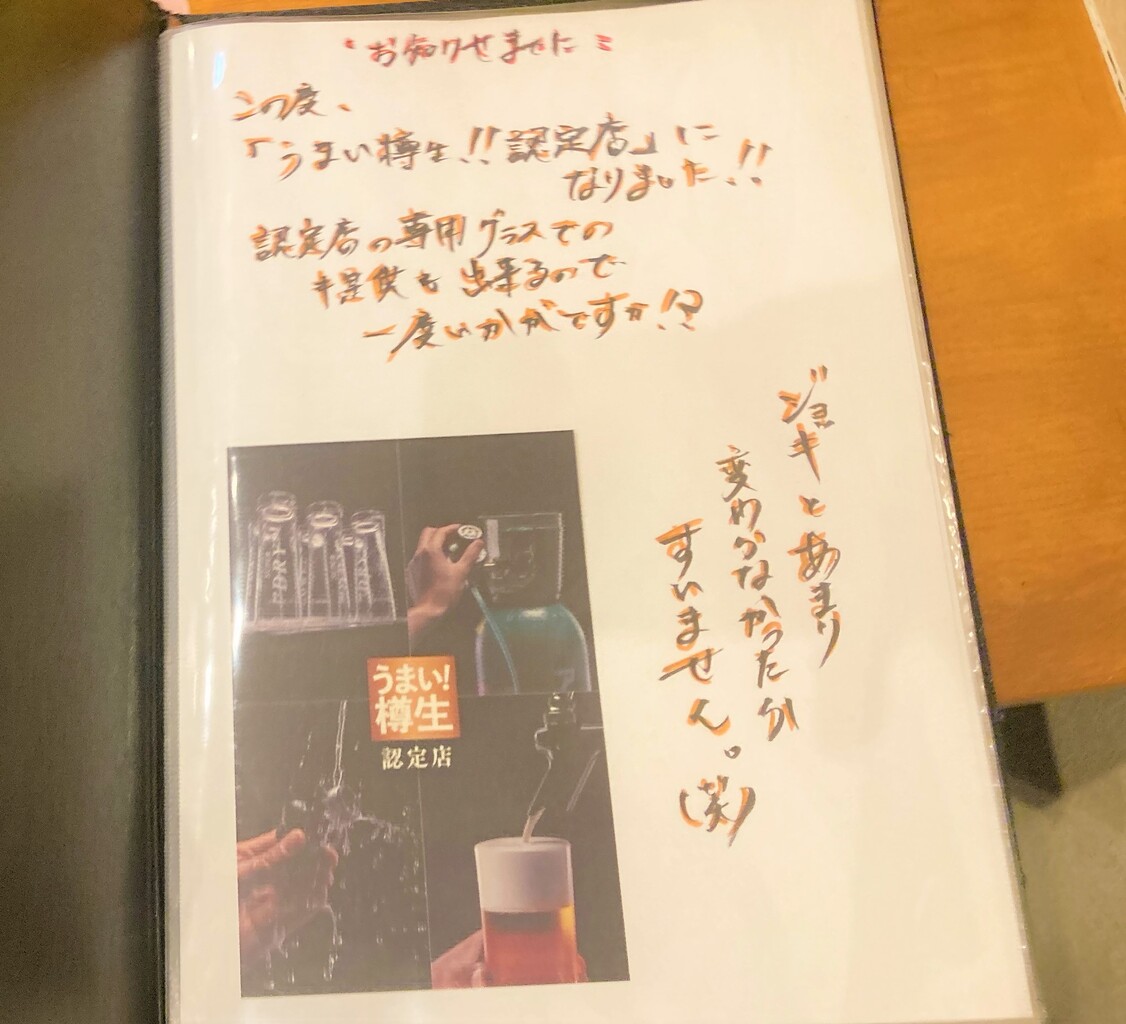 お知らせません
この度、
「うまい樽生!!認定店」に
なりました!!
認定店の専用グラスでの
提供も出来るので
一度いかがですか!?
ジョキとあまり
変わらなかったか
すいません。(笑)
DRY
うまい!
樽生
認定店